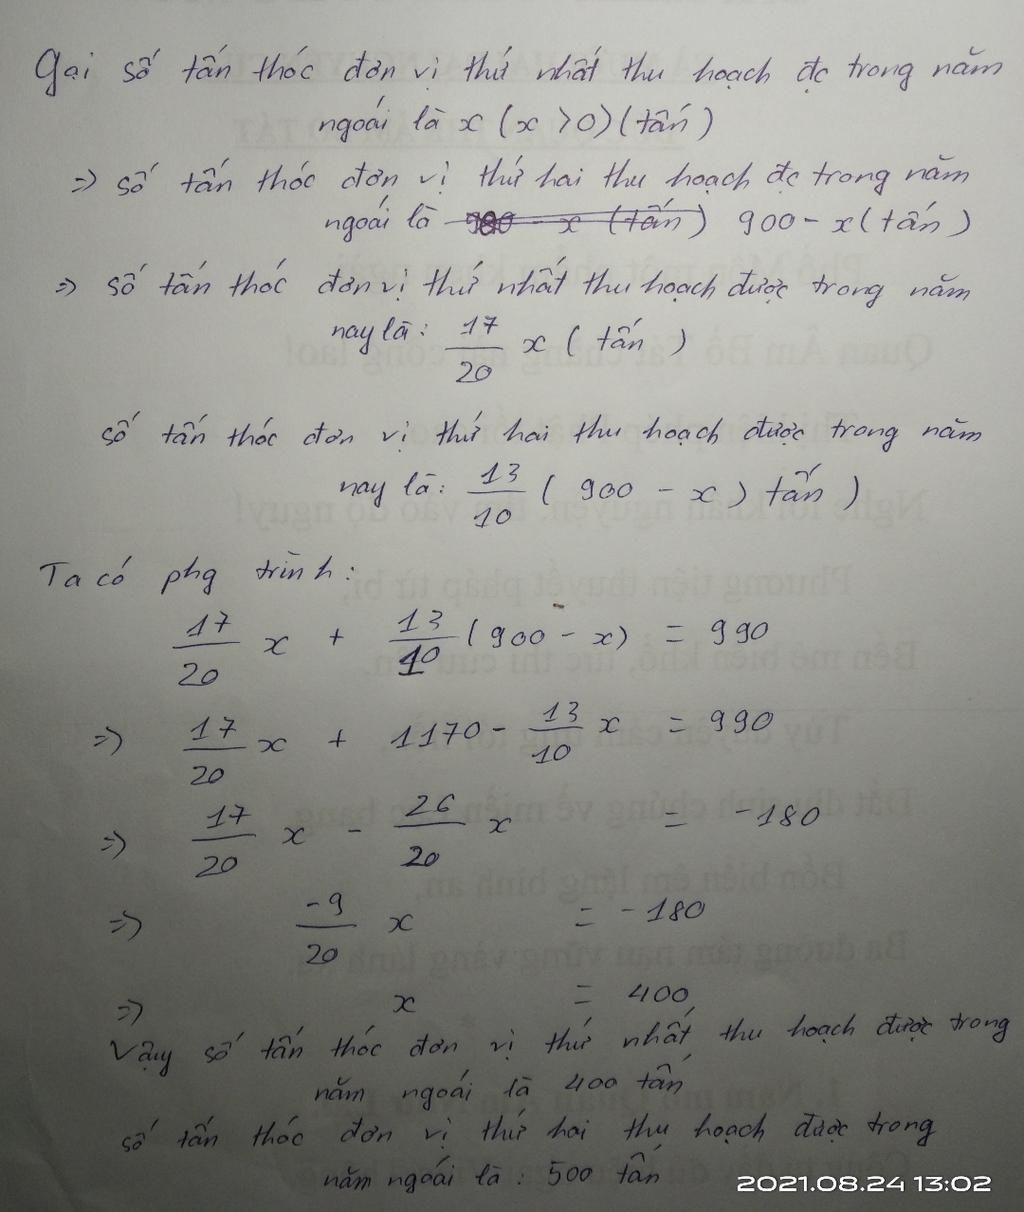 Gọi số tấn thóc đơn vị thứ nhất thu hoạch đc trong năm
ngoái là x (x > 0) (tấn)
=> số tấn thóc đơn vị thứ hai thu hoạch đc trong năm
ngoái là 900 - x (tấn) 900 - x (tấn)
=> số tấn thóc đơn vị thứ nhất thu hoạch được trong năm
nay là: 17/20 x (tấn)
số tấn thóc đơn vị thứ hai thu hoạch được trong năm
nay là: 13/10 (900 - x) tấn)
Ta có phg trình:
17/20 x + 13/10 (900 - x) = 990
=> 17/20 x + 1170 - 13/10 x = 990
=> 17/20 x - 26/20 x = -180
=> -9/20 x = -180
=> x = 400
Vậy số tấn thóc đơn vị thứ nhất thu hoạch được trong
năm ngoái là 400 tấn
số tấn thóc đơn vị thứ hai thu hoạch được trong
năm ngoái là: 500 tấn
2021.08.24 13:02